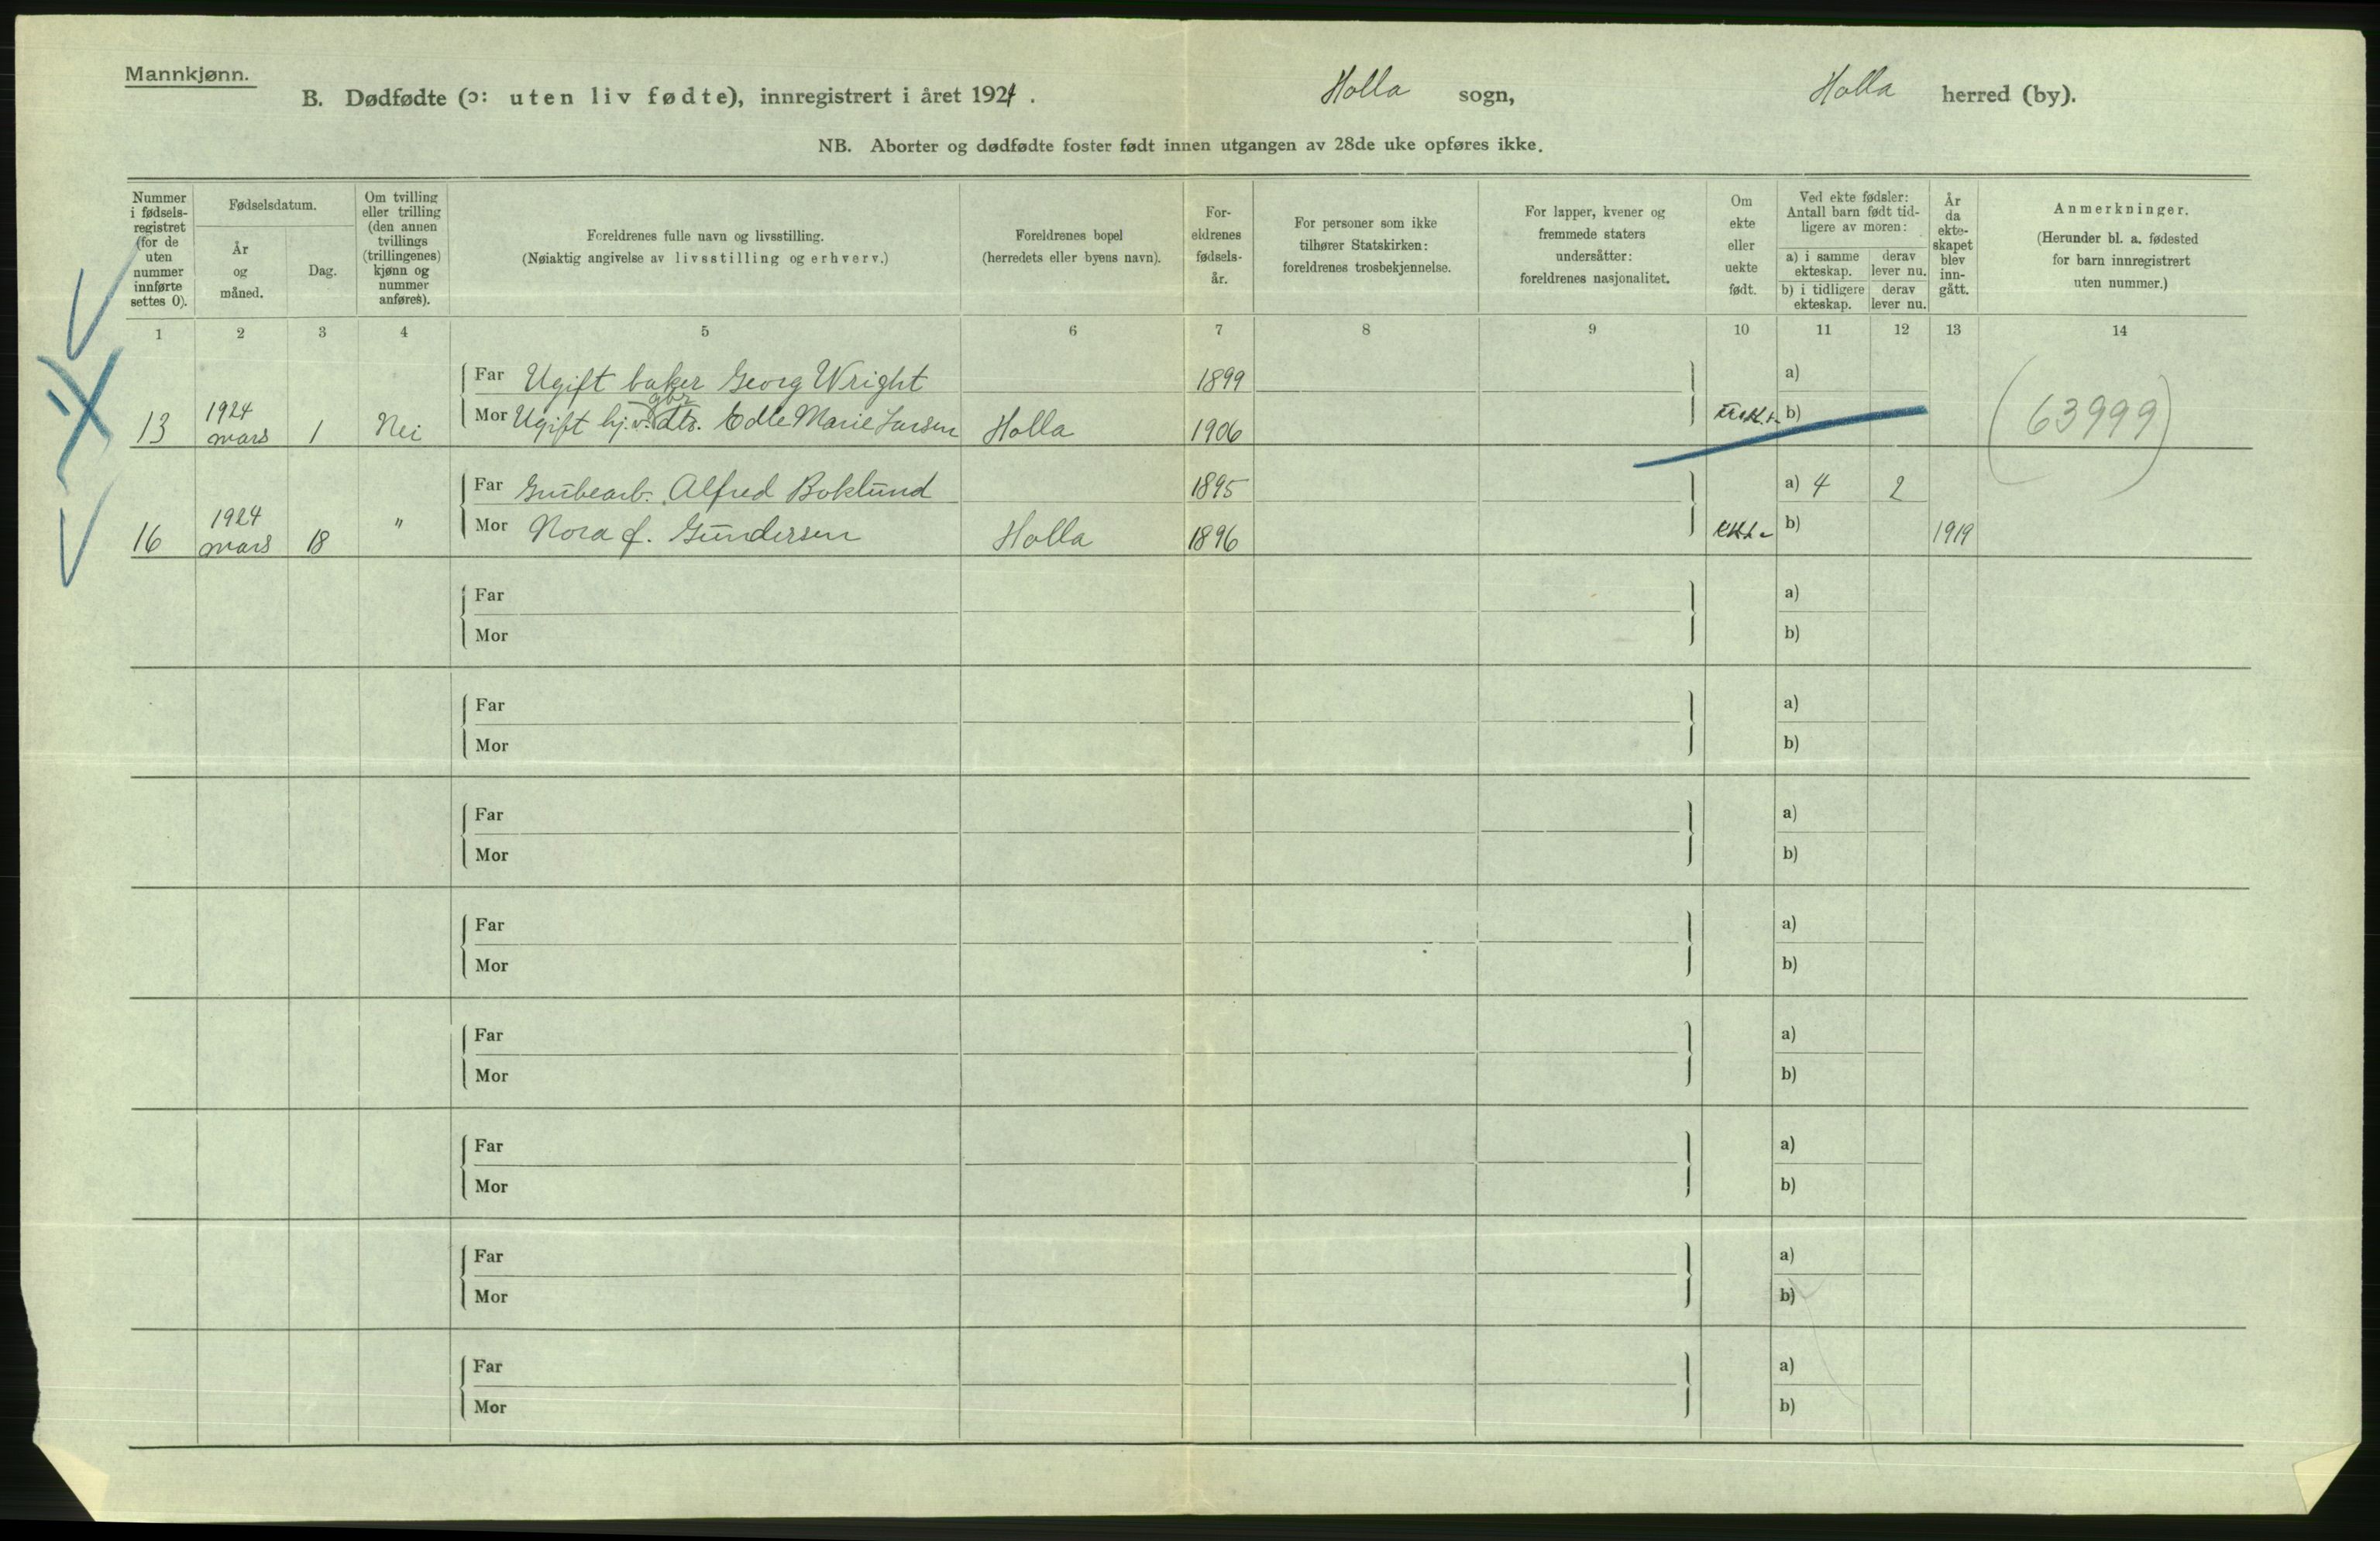 Mannkjønn.
B. Dødfødte (ɔ: uten liv fødte), innregistrert i året 1924. Holla sogn, Holla herred (by).
NB. Aborter og dødfødte foster født innen utgangen av 28de uke opføres ikke.
Nummer i fødsels-registret (for de uten nummer innførte settes 0).
Fødselsdatum.
År og måned.
Dag.
Om tvilling eller trilling (den annen tvillings (trillingenes) kjønn og nummer anføres).
Foreldrenes fulle navn og livsstilling.
(Nøiaktig angivelse av livsstilling og erhverv.)
Foreldrenes bopel
(herredets eller byens navn).
For-eldrenes fødsels-år.
For personer som ikke tilhører Statskirken: foreldrenes trosbekjennelse.
For lapper, kvener og fremmede staters undersåtter: foreldrenes nasjonalitet.
Om ekte eller uekte født.
Ved ekte fødsler: Antall barn født tid-ligere av moren:
a) i samme ekteskap.
derav lever nu.
b) i tidligere ekteskap.
derav lever nu.
År da ekte-skapet blev inn-gått.
Anmerkninger.
(Herunder bl. a. fødested for barn innregistrert uten nummer.)
1 2 3 4 5 6 7 8 9 10 11 12 13 14
Far Ugift baker Georg Wright 1899 a)
gbr
13 1924 mars 1 Nei Mor Ugift hj.v. dtr. Edle Marie Larsen Holla 1906 uekte b) (63999)
Far Grubearb. Alfred Boklund 1895 a) 4 2
16 1924 mars 18 " Mor Nora f. Gundersen Holla 1896 ekte b) 1919
Far a)
Mor b)
Far a)
Mor b)
Far a)
Mor b)
Far a)
Mor b)
Far a)
Mor b)
Far a)
Mor b)
Far a)
Mor b)
Far a)
Mor b)